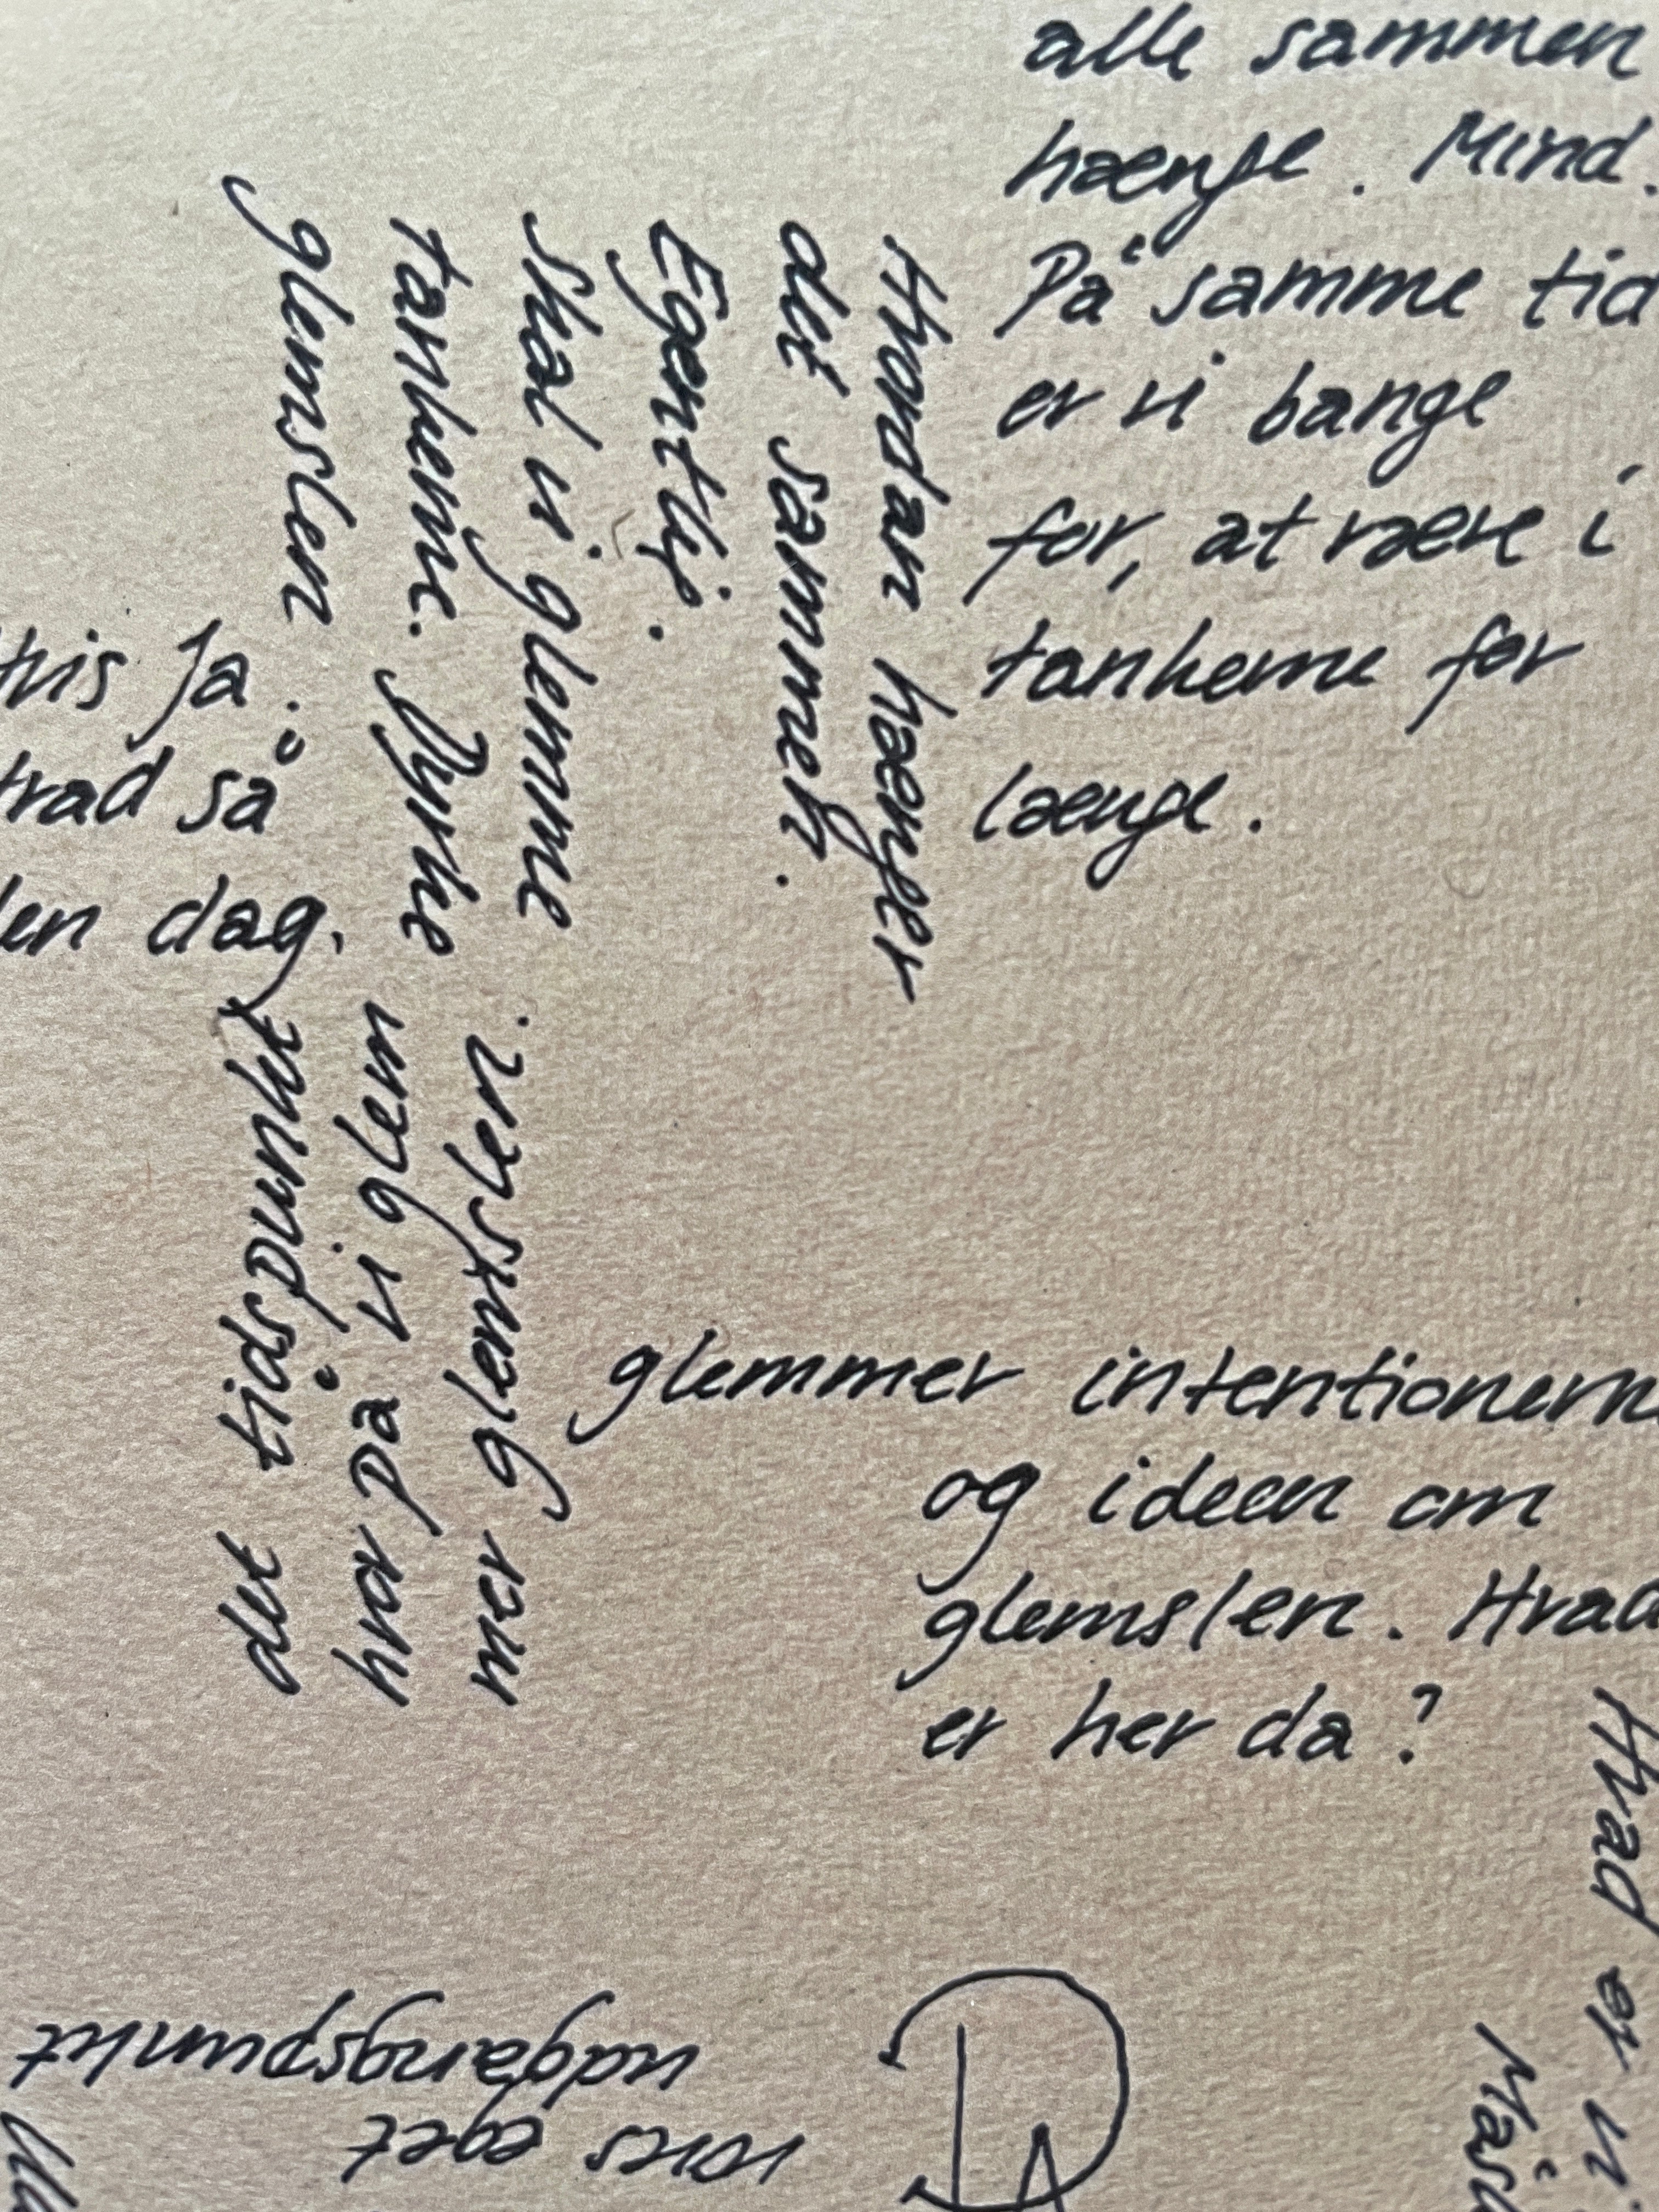 alle sammen
hænge. Mind.
På samme tid
er vi bange
for, at være i
tankerne for
længe.
Hvordan hænger
det sammen.
Egentlig.
Skal vi glemme
tankerne. Dyrke
glemslen
Ja.
så
dag.
det tidspunkt
hvor på vi glem
mer glemslen.
glemmer intentionerne
og ideen om
glemslen. Hvad
er her da?
Hvad er vi
vors eget
udgangspunkt